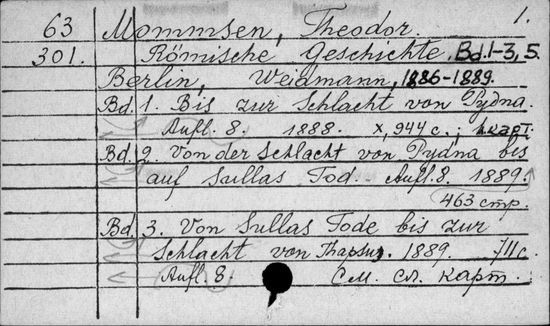 63 Mommsen, Theodor. 1.
301. Römische Geschichte. Bd. 1-3, 5.
Berlin, Weidmann, 1886-1889.
Bd. 1. Bis zur Schlacht von Pydna.
Aufl. 8. 1888. X, 944 с.; 1 карт.
Bd. 2. Von der Schlacht von Pydna bis
auf Sullas Tod. Aufl. 8. 1889.
463 стр.
Bd. 3. Von Sullas Tode bis zur
Schlacht von Thapsus. 1889. 711 с.
Aufl. 8. См. сл. карт.